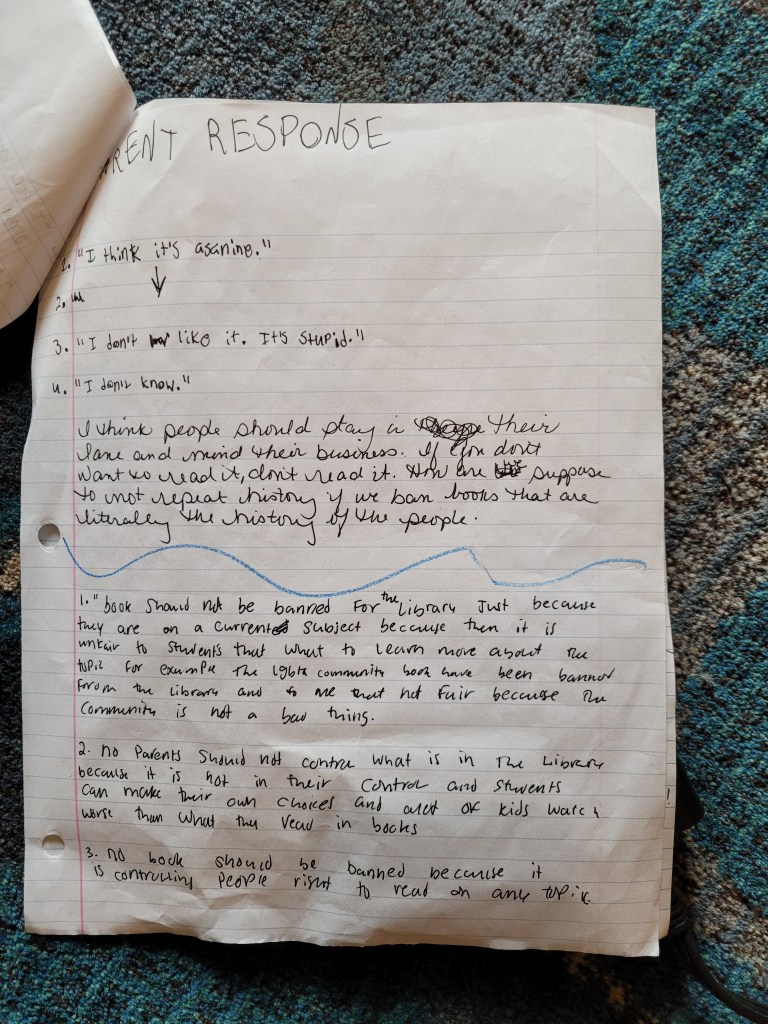 RENT RESPONSE
1. "I think it's asanine."
2.
3. "I don't like it. It's stupid."
4. "I don't know."
I think people should stay in their
lane and mind their business. If you don't
want to read it, don't read it. How are suppose
to not repeat history if we ban books that are
literaley the history of the people.
1." book Should not be banned For the Library Just because
they are on a current subject because then it is
unfair to Students that what to learn more about the
topic for example The lgbtq community book have been banned
from the Library and to me that not fair because The
community is not a bad thing.
2. no Parents Should not control what is in The Library
because it is not in their control and students
can make their own choices and alot of kids watch
worse than what they read in books
3. no book should be banned because it
is controlling people right to read on any topic